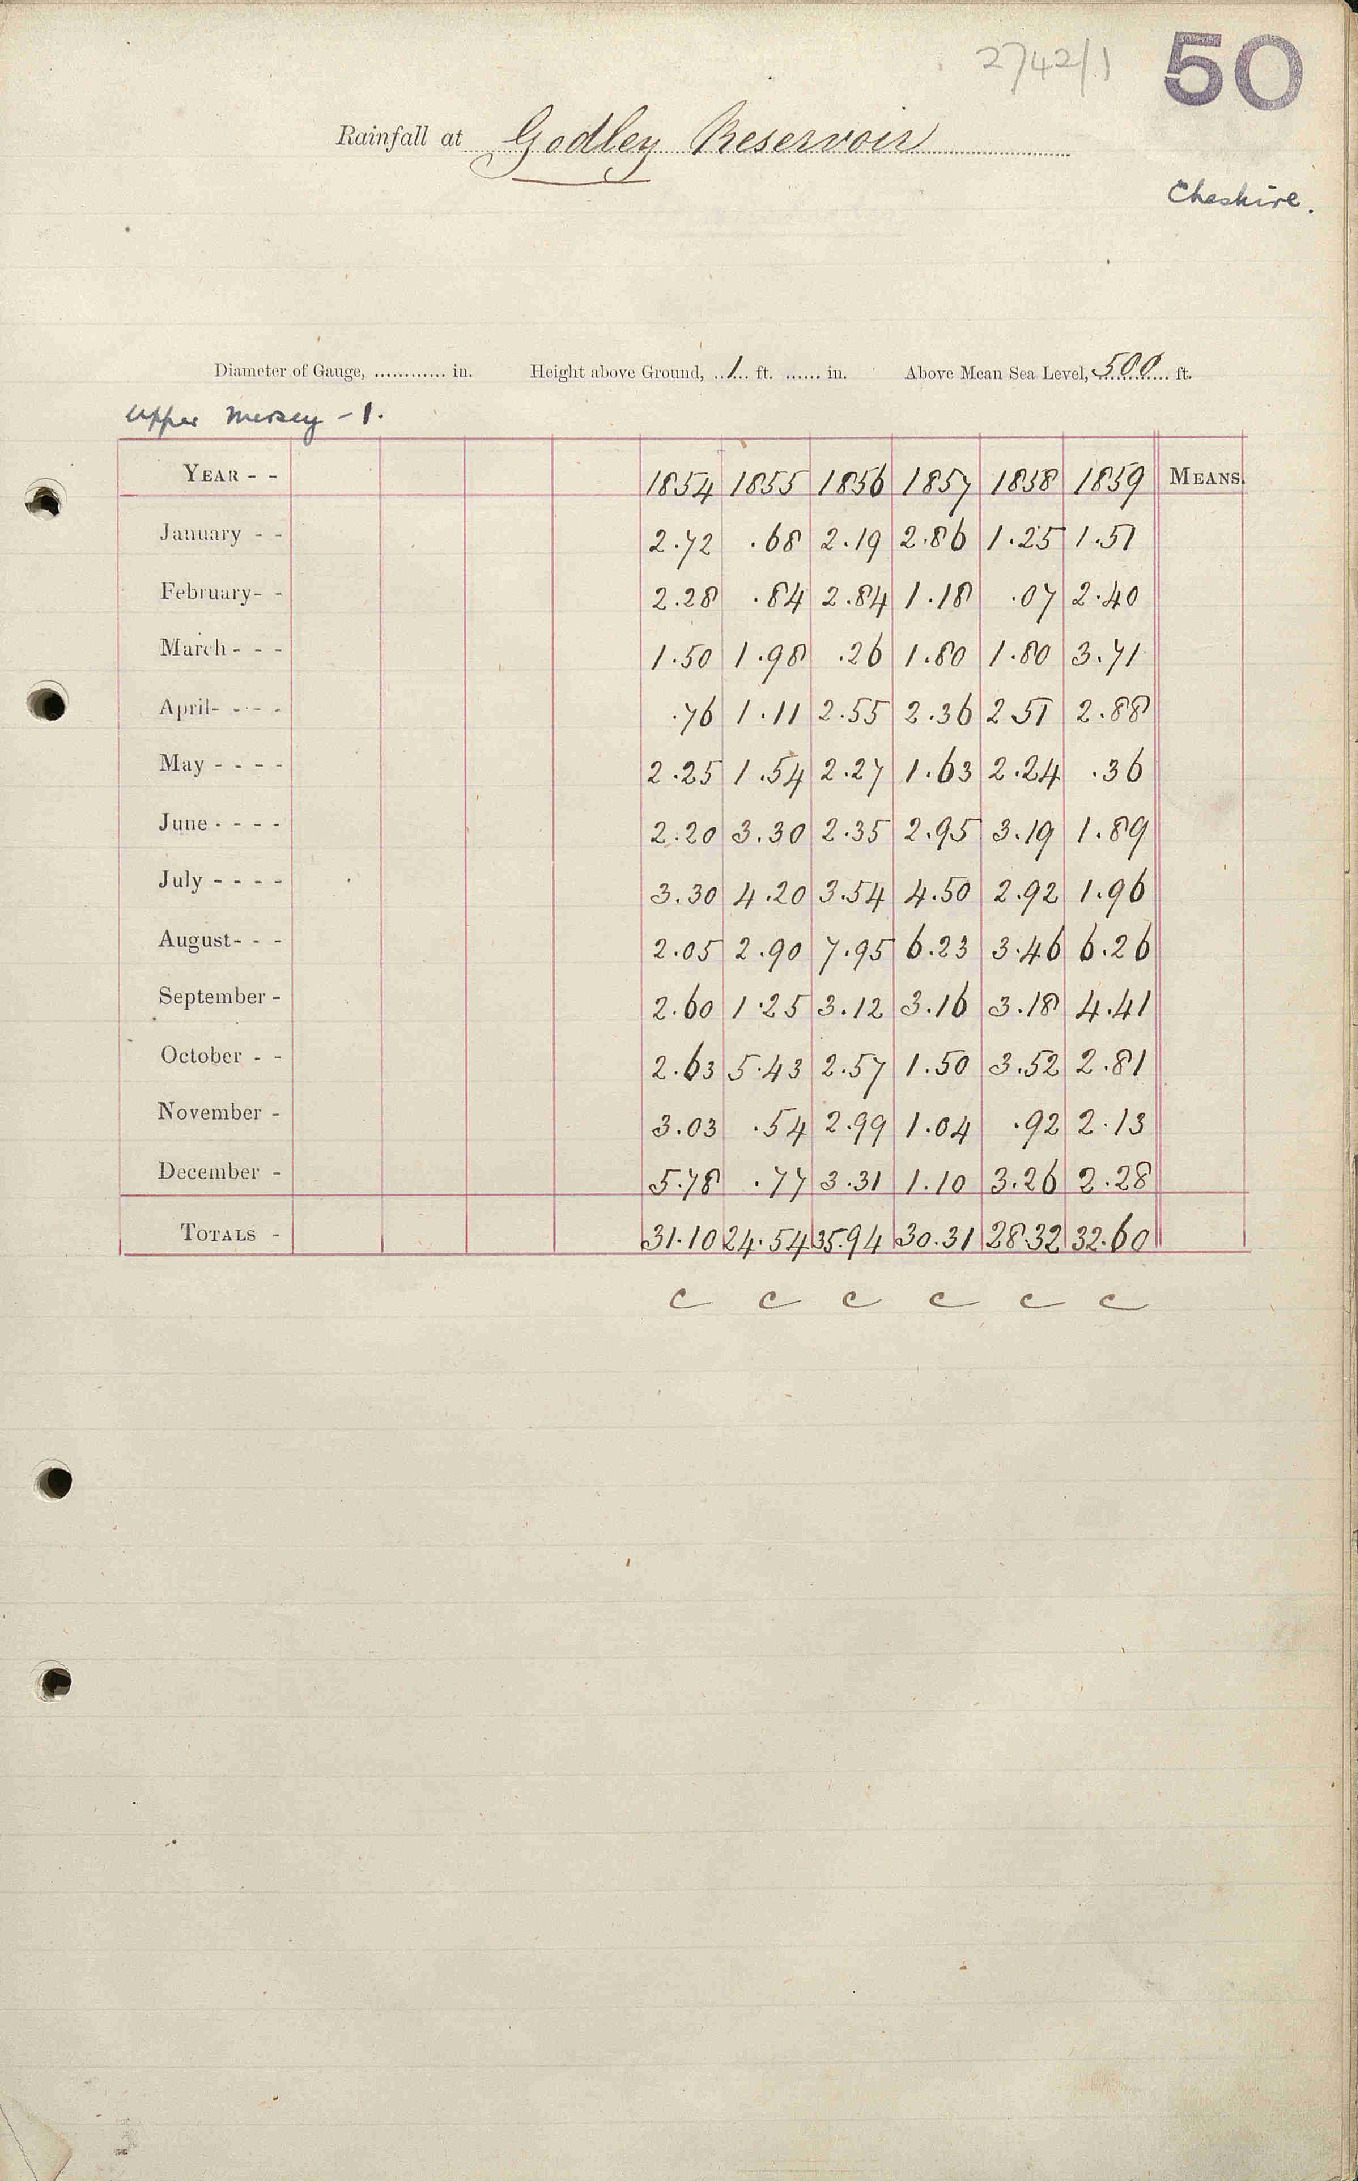 2742/1 50
Rainfall at Godley Reservoir
Cheshire.
Diameter of Gauge, ............ in. Height above Ground, ..1... ft. ...... in. Above Mean Sea Level, 500 ft.
Upper Mersey - 1.
YEAR - - 1854 1855 1856 1857 1858 1859 MEANS.
January - - 2.72 .68 2.19 2.86 1.25 1.51
February- - 2.28 .84 2.84 1.18 .07 2.40
March - - - 1.50 1.98 .26 1.80 1.80 3.71
April- - - - .76 1.11 2.55 2.36 2 51 2.88
May - - - - 2.25 1.54 2.27 1.63 2.24 .36
June - - - - 2.20 3.30 2.35 2.95 3.19 1.89
July - - - - 3.30 4.20 3.54 4.50 2.92 1.96
August- - - 2.05 2.90 7.95 6.23 3.46 6.26
September - 2.60 1.25 3.12 3.16 3.18 4.41
October - - 2.63 5.43 2.57 1.50 3.52 2.81
November - 3.03 .54 2.99 1.04 .92 2.13
December - 5.78 .77 3.31 1.10 3.26 2.28
TOTALS - 31.10 24.54 35.94 30.31 28.32 32.60
c c c c c c